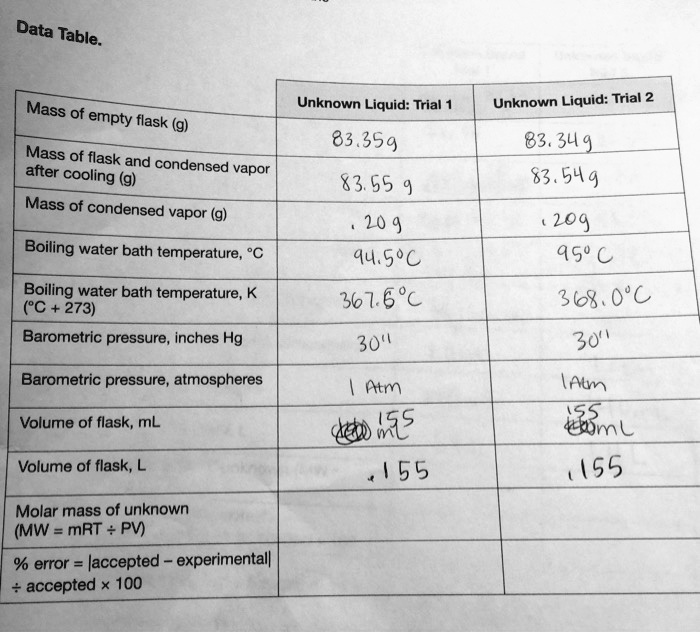 Data Table.
Unknown Liquid: Trial 1 Unknown Liquid: Trial 2
Mass of empty flask (g) 83.35g 83.34g
Mass of flask and condensed vapor
after cooling (g) 83.55 g 83.54g
Mass of condensed vapor (g) .20g .20g
Boiling water bath temperature, °C 94.5°C 95°C
Boiling water bath temperature, K
(°C + 273) 367.5°C 368.0°C
Barometric pressure, inches Hg 30" 30"
Barometric pressure, atmospheres 1 Atm 1Atm
Volume of flask, mL 155 mL 155 mL
Volume of flask, L .155 .155
Molar mass of unknown
(MW = mRT ÷ PV)
% error = |accepted – experimental|
÷ accepted × 100